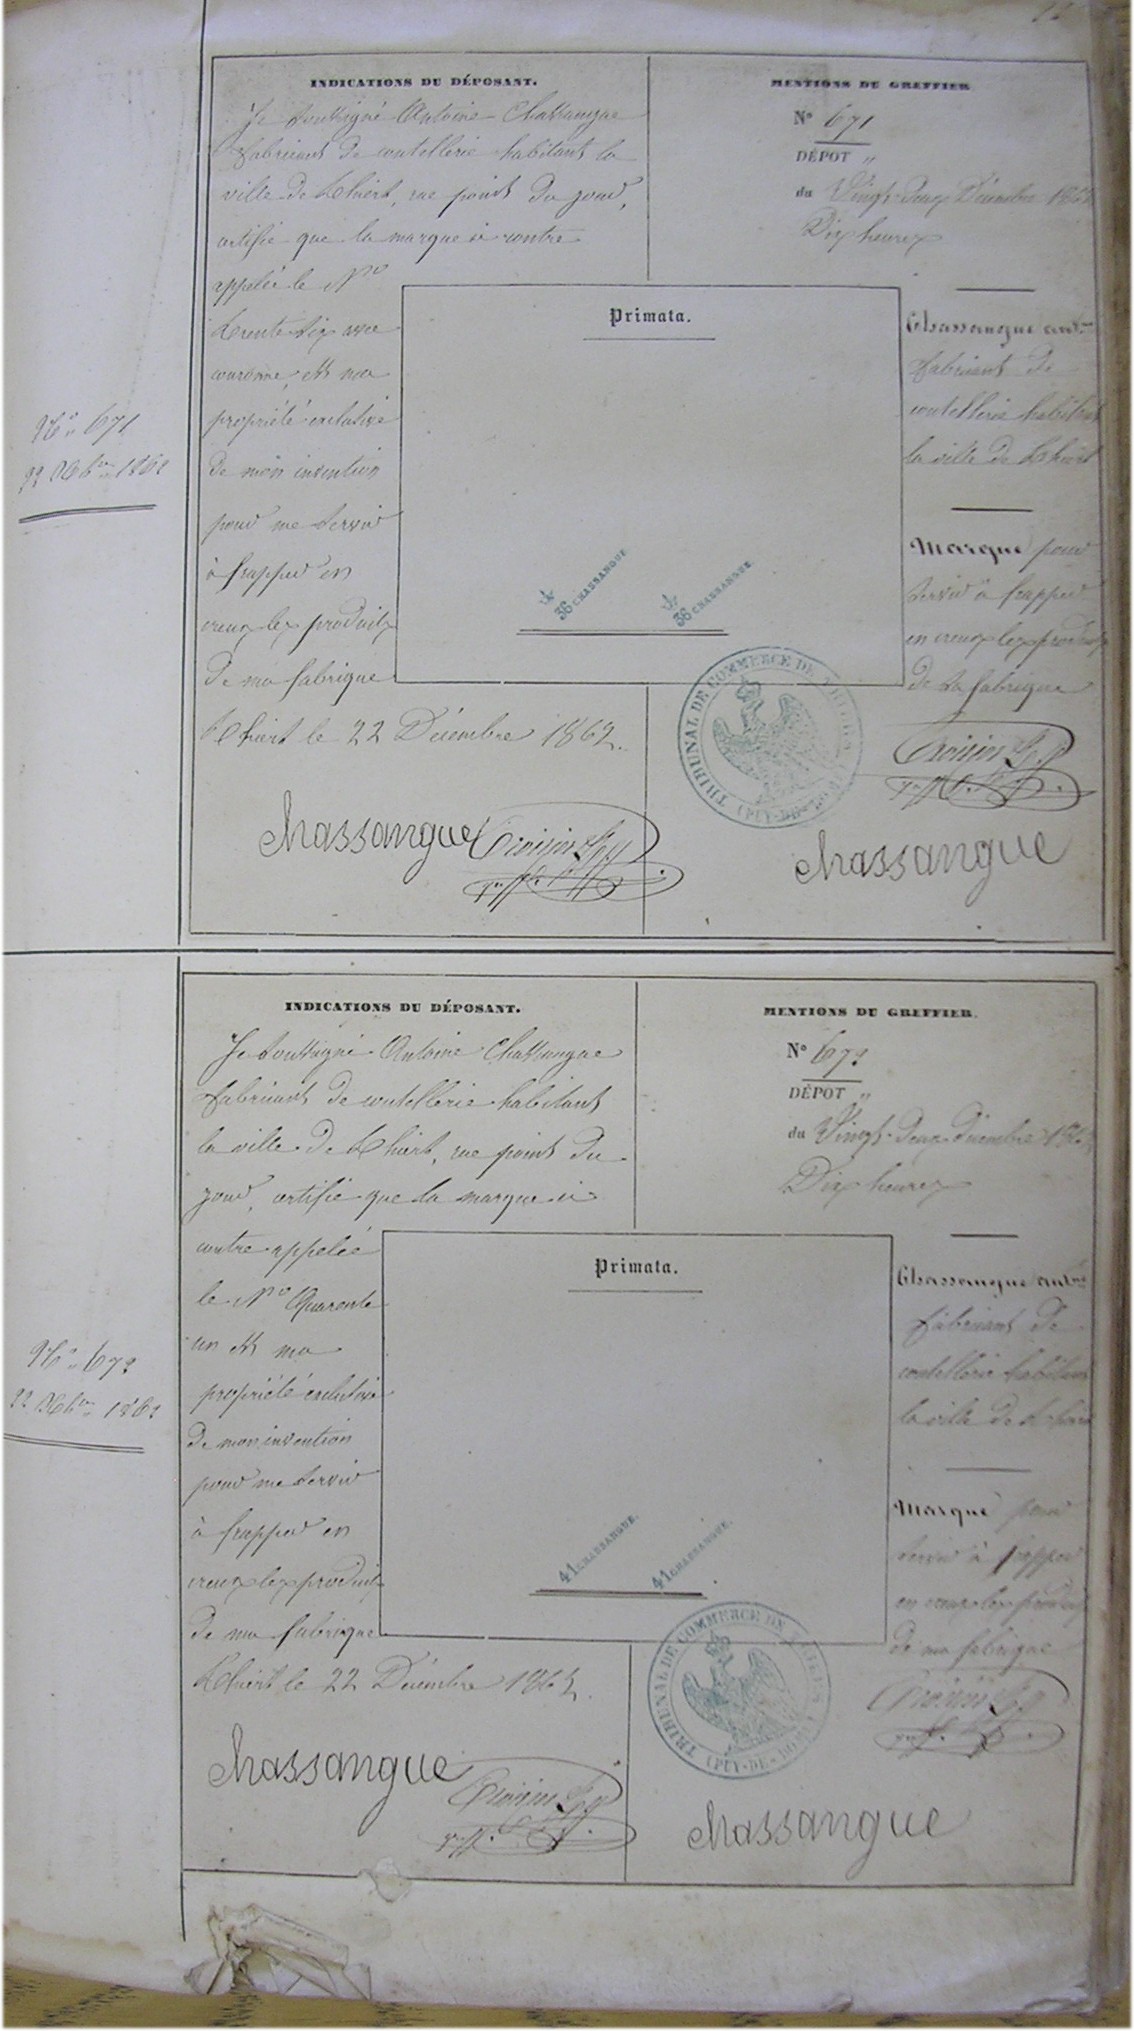 INDICATIONS DU DÉPOSANT.
Je soussigné Antoine Chassangue
fabricant de coutellerie habitant la
ville de Thiers, rue point du jour,
certifie que la marque ci contre
appelée le Nº
trente six avec
couronne, est ma
propriété exclusive
de mon invention
pour me servir
à frapper en
creux les produits
de ma fabrique
Thiers le 22 Décembre 1862.
chassangue
MENTIONS DU GREFFIER
Nº 671
DÉPOT „
du Vingt-deux Décembre 1862
Dix heures
Chassangue ant.ne
fabricant de
coutellerie habitant
la ville de Thiers
Marque pour
servir à frapper
en creux les produits
de sa fabrique
chassangue
Primata.
36 CHASSANGUE
36 CHASSANGUE
TRIBUNAL DE COMMERCE DE THIERS
(PUY-DE-DOME)
Nº 671
22 Xbre 1862
INDICATIONS DU DÉPOSANT.
Je soussigné Antoine Chassangue
fabricant de coutellerie habitant
la ville de Thiers, rue point du
jour, certifie que la marque ci
contre appelée
le Nº Quarante
un est ma
propriété exclusive
de mon invention
pour me servir
à frapper en
creux les produits
de ma fabrique
Thiers le 22 Décembre 1862.
chassangue
MENTIONS DU GREFFIER.
Nº 672
DÉPOT „
du Vingt-deux décembre 1862
Dix heures
Chassangue ant.ne
fabricant de
coutellerie habitant
la ville de Thiers
Marque pour
servir à frapper
en creux les produits
de ma fabrique
chassangue
Primata.
41 CHASSANGUE.
41 CHASSANGUE.
TRIBUNAL DE COMMERCE DE THIERS
(PUY-DE-DOME)
Nº 672
22 Xbre 1862